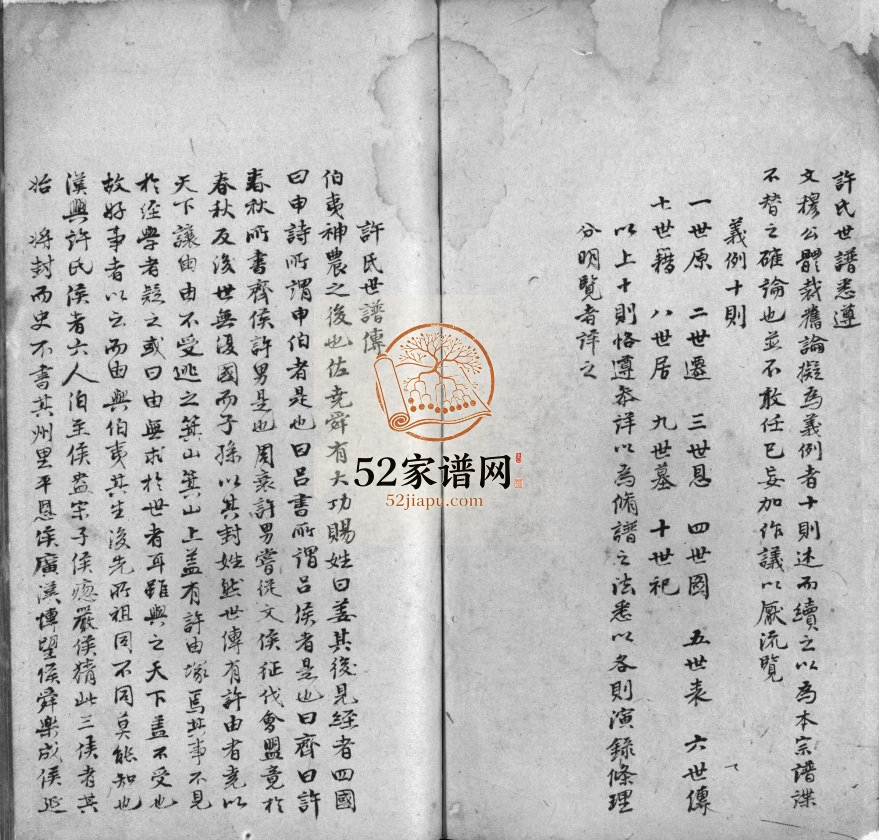 許氏世譜悉遵
文穆公體裁舊論擬為義例者十則述而續之以為本宗譜諜
不替之確論也並不敢任己妄加作議以厭流覽
義例十則
一世原 二世遷 三世恩 四世圖 五世表 六世傳
七世籍 八世居 九世墓 十世祀
以上十則恪遵叅詳以為脩譜之法悉以各則演錄條理
分明覽者詳之
許氏世譜傳
伯夷神農之後也佐堯舜有大功賜姓曰姜其後見經者四國
曰申詩所謂申伯者是也曰吕書所謂吕侯者是也曰齊曰許
春秋所書齊侯許男是也周衰許男嘗從文侯征伐會盟竟於
春秋及後世無復國而子孫以其封姓然世傳有許由者堯以
天下讓由由不受逃之箕山箕山上盖有許由塚焉其事不見
於經學者疑之或曰由無求於世者耳雖與之天下盖不受也
故好事者以云而由與伯夷其生後先所祖同不同莫能知也
漢興許氏侯者六人伯至侯盎宋子侯瘛嚴侯猜此三侯者其
始 將封而史不書其州里平恩侯廣漢博望侯舜樂成侯延
52家谱网
52jiapu.com